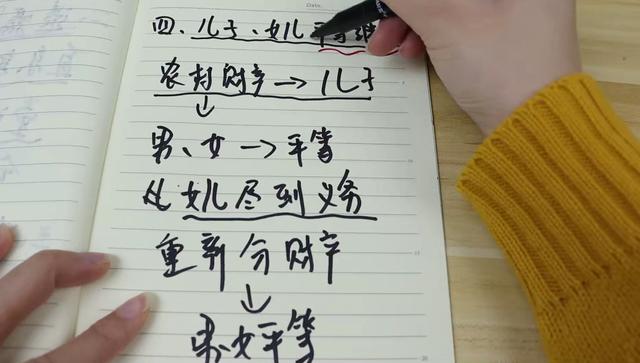 四、儿子、女儿平等
农村财产→儿子
↓
男、女→平等
女儿尽到义务
重新分财产
↓
男女平等